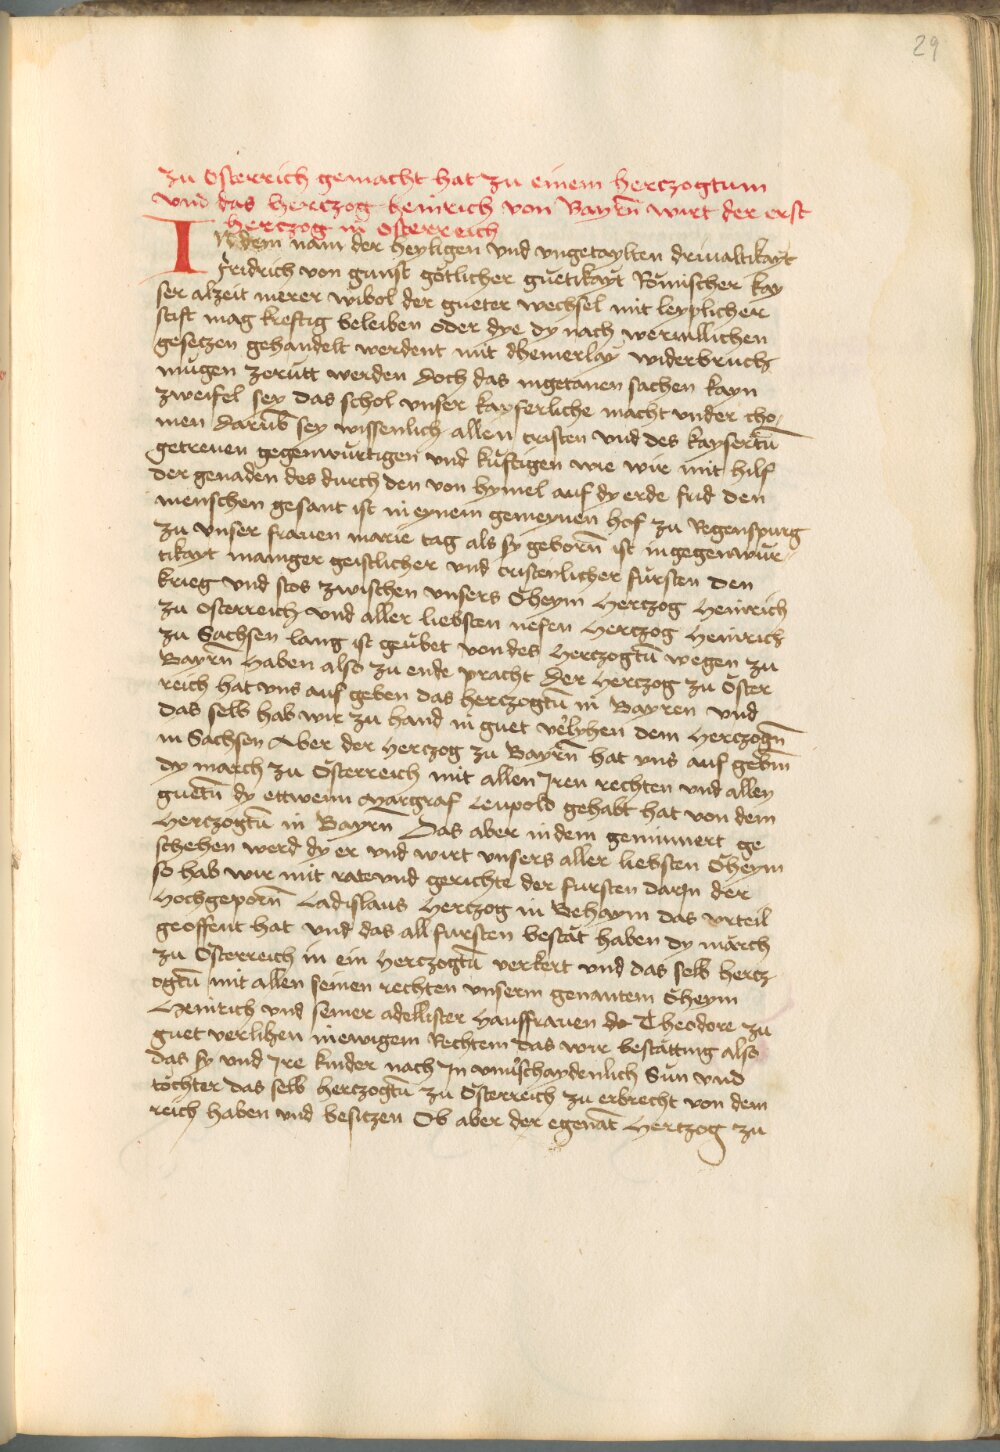 29
zu Osterrich gemacht hat zu einem herczogtum
vnd das herczog heinrich von Bayrn̄ wirt der erst
herczog in Osterreich
IN dem nam der heyligen vnd vngetaylten driualtikayt
Fridrich von gunst götlicher guetikayt Römischer kay
ser alzeit merer wibol der gueter wechsel mit leyplicher
stift mag kreftig beleiben oder dye dy nach wertnllichen
gesetzen gehandelt werdent mit dhemerlay widerbruch
mügen zerütt werden Doch das ingetanen sachen kayn
zweifel sey das schol vnser kayserliche macht vnder cho
men Darūb sey wissenlich allen cristen vnd des kaysertū
getreuen gegenwürtigen vnd kuftigen wie wir mit hilf
der genaden des durch den von hymel auf dy erde frid den
menschen gesant ist in eynem gemeynen hof zu Regenspurg
zu vnser frauen marie tag als sy geborn̄ ist ingegenwür
tikayt maniger geistlicher vnd cristenlicher fürsten den
krieg vnd stos zwischen vnsers Öheym Hertzog Heinrich
zu osterreich vnd aller liebsten nefen Hertzog Heinrich
zu Sachsen lang ist geübet von des Hertzogtū wegen zu
Bayrn̄ haben also zu ende pracht Der Hertzog zu Öster
reich hat vns auf geben das herczogtū in Bayren vnd
das selb hab wir zu hand in guet v̓lyhen dem Herczogn̄
in Sachsen Aber der Hertzog zu Bayrn̄ hat vns auf gebm̄
dy march zu Österreich mit allen Iren rechten vnd allen
guetū dy ettwenn Margraf Leupold gehabt hat von dem
Herczogtū in Bayrn̄ Das aber indem geminnert ge
schehen werd dy er vnd wirt vnsers aller liebsten Öheym
so hab wir mit rate vnd gerichte der fursten darin der
Hochgeporn̄ Ladislaus Hertzog in Behaym das vrteil
geoffent hat vnd das all fursten bestät haben dy march
zu Österreich in ein Herczogtū verkert vnd das selb hertz
ogtū mit allen seinen rechten vnserm genantem Öheym
Heinrich vnd seiner adellister Hauffrauen de Theodore zu
guet verlihen in ewigem Rechtem das wir bestättung also
das sy vnd Ire kinder nach In vnuͦschaydenlich Sün vnd
töchter das selb herczogtū zu Österreich zu erbrecht von dem
reich haben vnd besitzen Ob aber der egenāt Hertzog zu